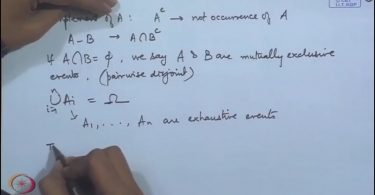 of A : Aᶜ → not occurrence of A
A − B → A∩Bᶜ
if A∩B = φ, we say A & B are mutually exclusive
events, (pairwise disjoint)
⋃ᵢ₌₁ⁿ Aᵢ = Ω
↳ A₁, ..., Aₙ are exhaustive events